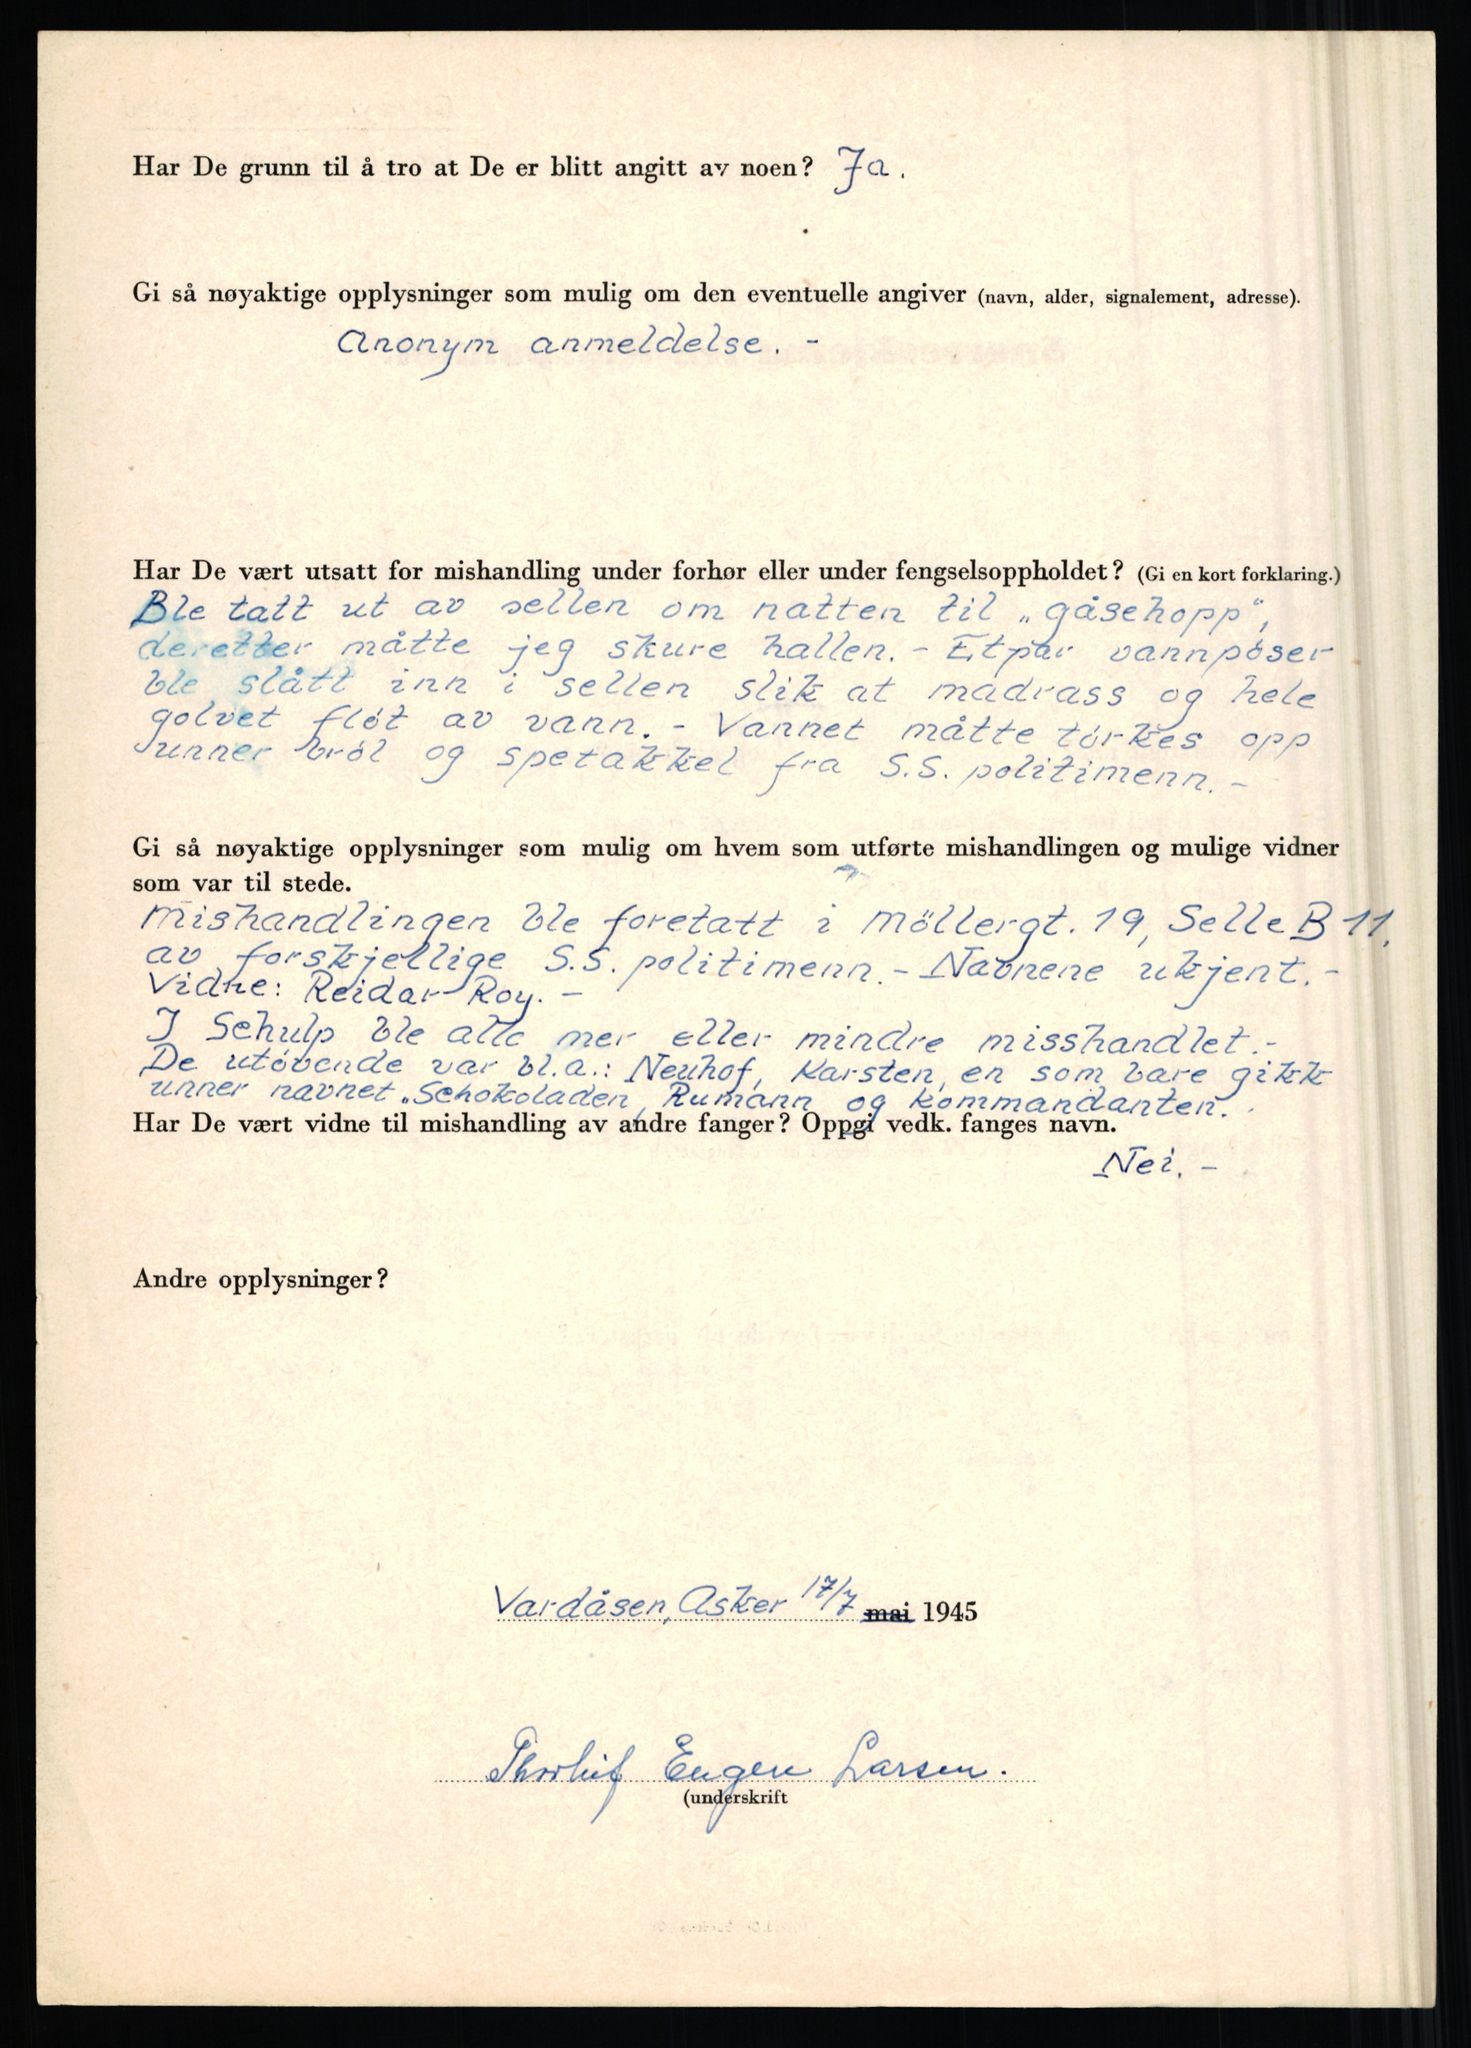 Har De grunn til å tro at De er blitt angitt av noen? Ja.
Gi så nøyaktige opplysninger som mulig om den eventuelle angiver (navn, alder, signalement, adresse).
Anonym anmeldelse. -
Har De vært utsatt for mishandling under forhør eller under fengselsoppholdet? (Gi en kort forklaring.)
Ble tatt ut av sellen om natten til „gåsehopp",
deretter måtte jeg skure hallen. - Etpar vannpøser
ble slått inn i sellen slik at madrass og hele
golvet fløt av vann. - Vannet måtte tørkes opp
unner brøl og spetakkel fra S.S. politimenn. -
Gi så nøyaktige opplysninger som mulig om hvem som utførte mishandlingen og mulige vidner
som var til stede.
Mishandlingen ble foretatt i Möllergt. 19, Selle B 11.
av forskjellige S.S. politimenn. - Navnene ukjent. -
Vidne: Reidar Roy. -
I Sehulp ble alle mer eller mindre misshandlet. -
De utövende var bl.a.: Neuhof, Karsten, en som bare gikk
unner navnet „Schokoladen, Rumann og kommandanten.
Har De vært vidne til mishandling av andre fanger? Oppgi vedk. fanges navn.
Nei. -
Andre opplysninger?
Vardåsen, Asker 17/7 mai 1945
Thorleif Eugen Larsen.
(underskrift